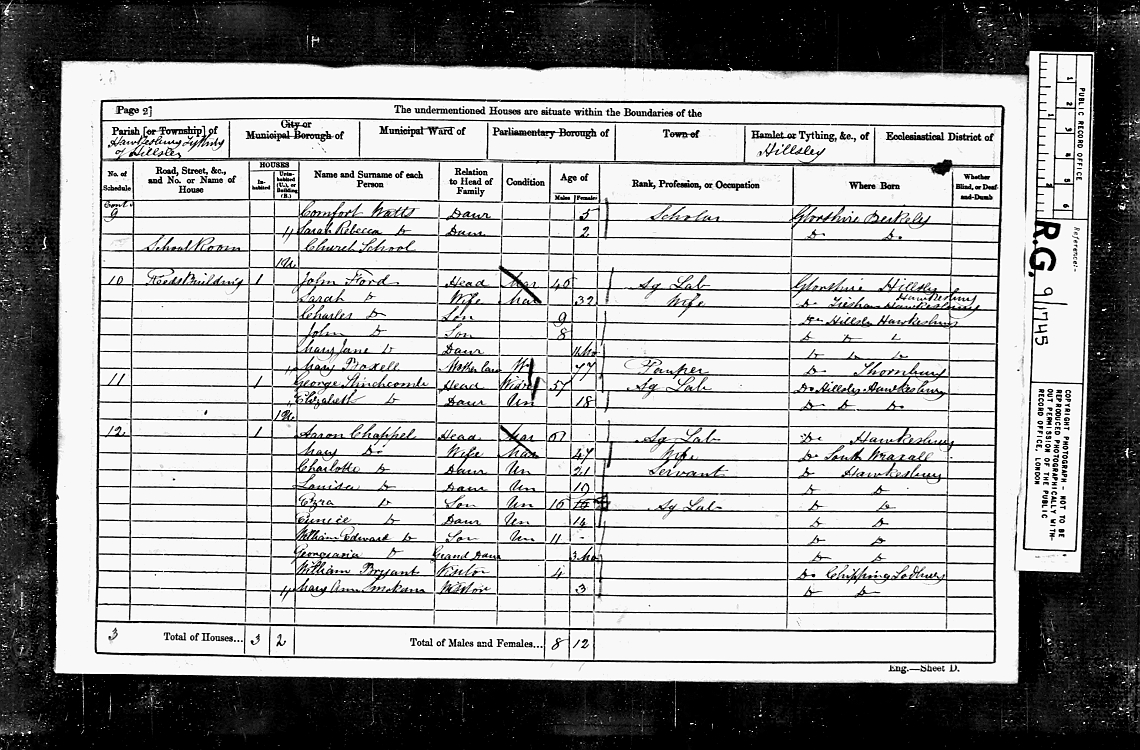 [Page 2]
The undermentioned Houses are situate within the Boundaries of the
Parish [or Township] of
Hawkesbury Tything of Hillsley
City or Municipal Borough of
Municipal Ward of
Parliamentary Borough of
Town of
Hamlet or Tything, &c., of
Hillsley
Ecclesiastical District of
No. of Schedule
Road, Street, &c., and No. or Name of House
HOUSES
Inhabited
Uninhabited (U.), or Building (B.)
Name and Surname of each Person
Relation to Head of Family
Condition
Age of
Males
Females
Rank, Profession, or Occupation
Where Born
Whether Blind, or Deaf-and-Dumb
Cont. 9 Comfort Watts Daur 5 Scholar Glorshire Berkeley
Sarah Rebecca Do Daur 2 Do Do
School Room Church School
1 U.
10 Reeds Building 1 John Ford Head Mar 40 Ag Lab Glorshire Hillsley Hawkesbury
Sarah Do Wife Mar 32 Wife Do Hawkesbury
Charles Do Son 9 Do Hillsley Hawkesbury
John Do Son 8 Do Do
Mary Jane Do Daur 11 Mo Do Do Do
Mary Boxell Mother Law W 77 Pauper Do Thornbury
11 1 George Stinchcombe Head Widr 57 Ag Lab Do Hillsley Hawkesbury
Elizabeth Do Daur Un 18 Do Do Do
1 U.
12 1 Aaron Chappel Head Mar Ag Lab Do Hawkesbury
Mary Do Wife Mar 47 Wife Do South Wraxall
Charlotte Do Daur Un 21 Servant Do Hawkesbury
Louisa Do Daur Un 19 Do Do
Ezra Do Son Un 16 Ag Lab Do Do
Eunice Do Daur Un 14 Do Do
William Edward Do Son Un 11 Do Do
Georgeasia Do Grand Daur 3 Mo Do Do
William Bryant Visitor 4 Do Chipping Sodbury
Mary Ann Visitor 3 Do Do
3 Total of Houses... 3 2 Total of Males and Females... 8 12
Eng.—Sheet D.
PUBLIC RECORD OFFICE
1 2 3 4 5 6
Reference:-
R.G. 9/1745
COPYRIGHT PHOTOGRAPH - NOT TO BE REPRODUCED PHOTOGRAPHICALLY WITHOUT PERMISSION OF THE PUBLIC RECORD OFFICE, LONDON